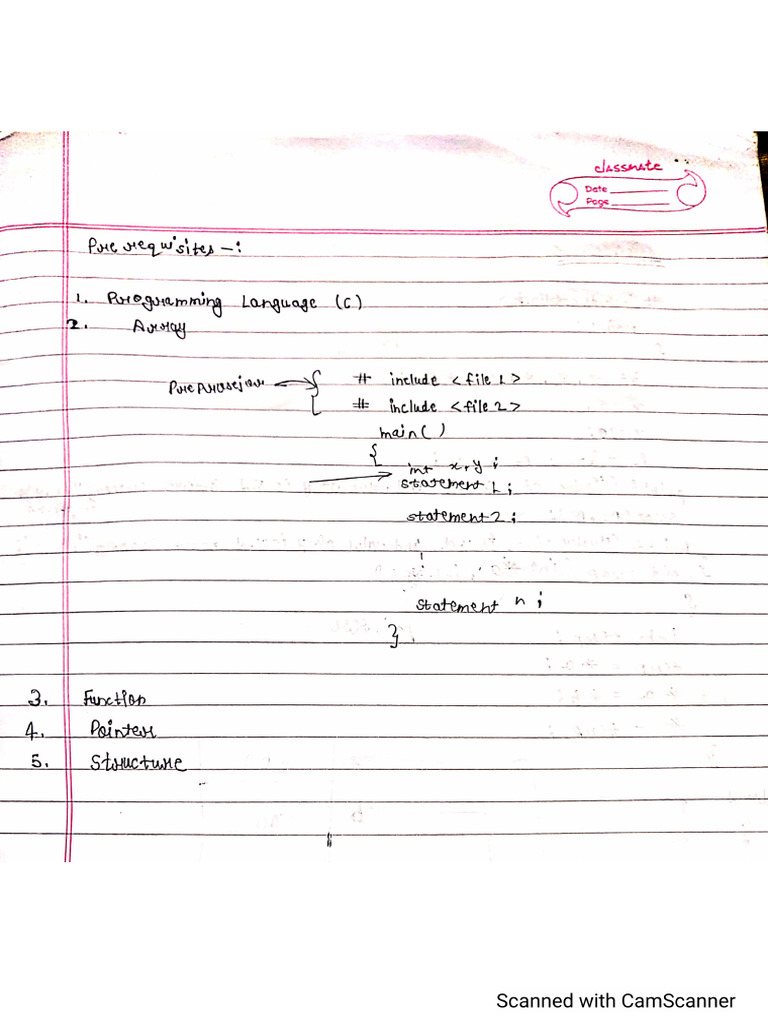 classmate
Date
Page
Pre requisites -:
1. Programming Language (C)
2. Array
# include <file 1>
# include <file 2>
main()
{
int x, y ;
statement 1 ;
statement 2 ;
statement n ;
}
3. Function
4. Pointer
5. Structure
Scanned with CamScanner